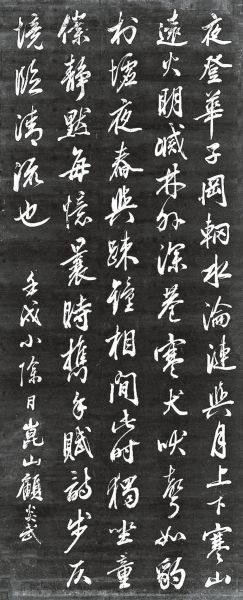 夜登華子岡輞水淪漣與月上下寒山
遠火明滅林外深巷寒犬吠聲如豹
村墟夜舂與疎鐘相間此時獨坐童
僕靜默每憶曩時携手賦詩步仄
境臨清流也 壬戌小除日崑山顧炎武